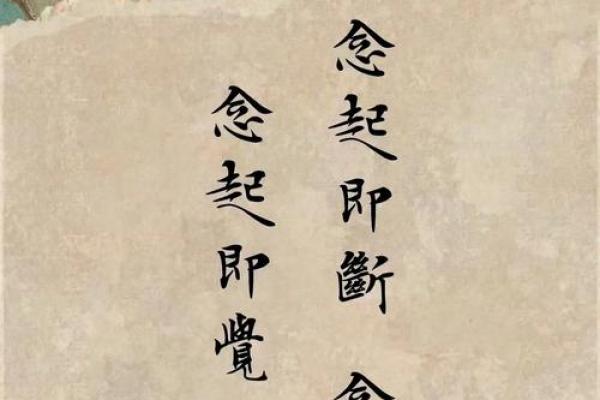 念起即斷 念
念起即覺